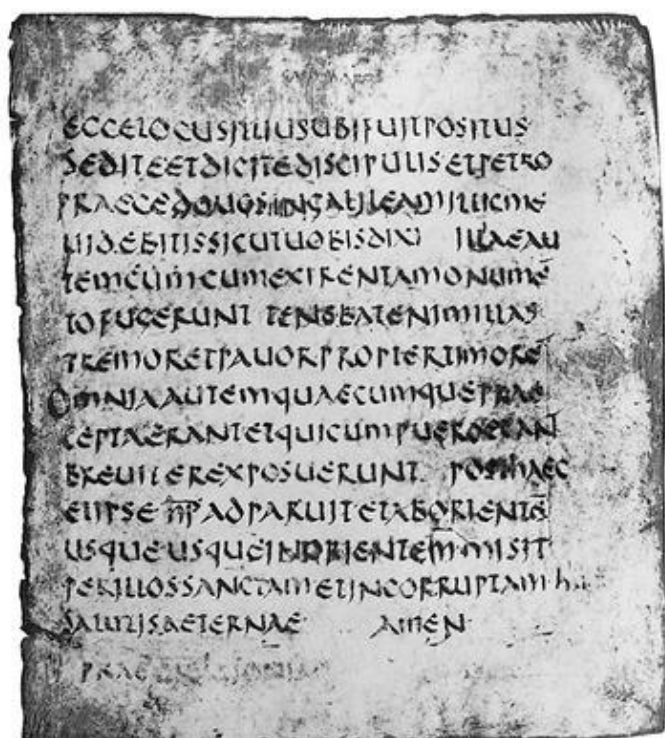 ECCELOCUSILLIUSUBIFUITPOSITUS
SEDITEETDICITEDISCIPULISETPETRO
PRAECEDOUOSINGALILEAMILLICME
UIDEBITISSICUTUOBISDIXI ILLAEAU
TEMCUMCUMEXIRENTAMONUMĒ
TOFUGERUNT TENEBATENIMILLAS
TREMORETPAUORPROPTERTIMORĒ
OMNIAAUTEMQUAECUMQUEPRAE
CEPTAERANTETQUICUMPUEROERANT
BREUITEREXPOSUERUNT POSTHAEC
ETIPSE ADPARUITETABORIENTĒ
USQUEUSQUEINORIENTEM·MISIT
PERILLOSSANCTAMETINCORRUPTAM
SALUTISAETERNAE AMEN